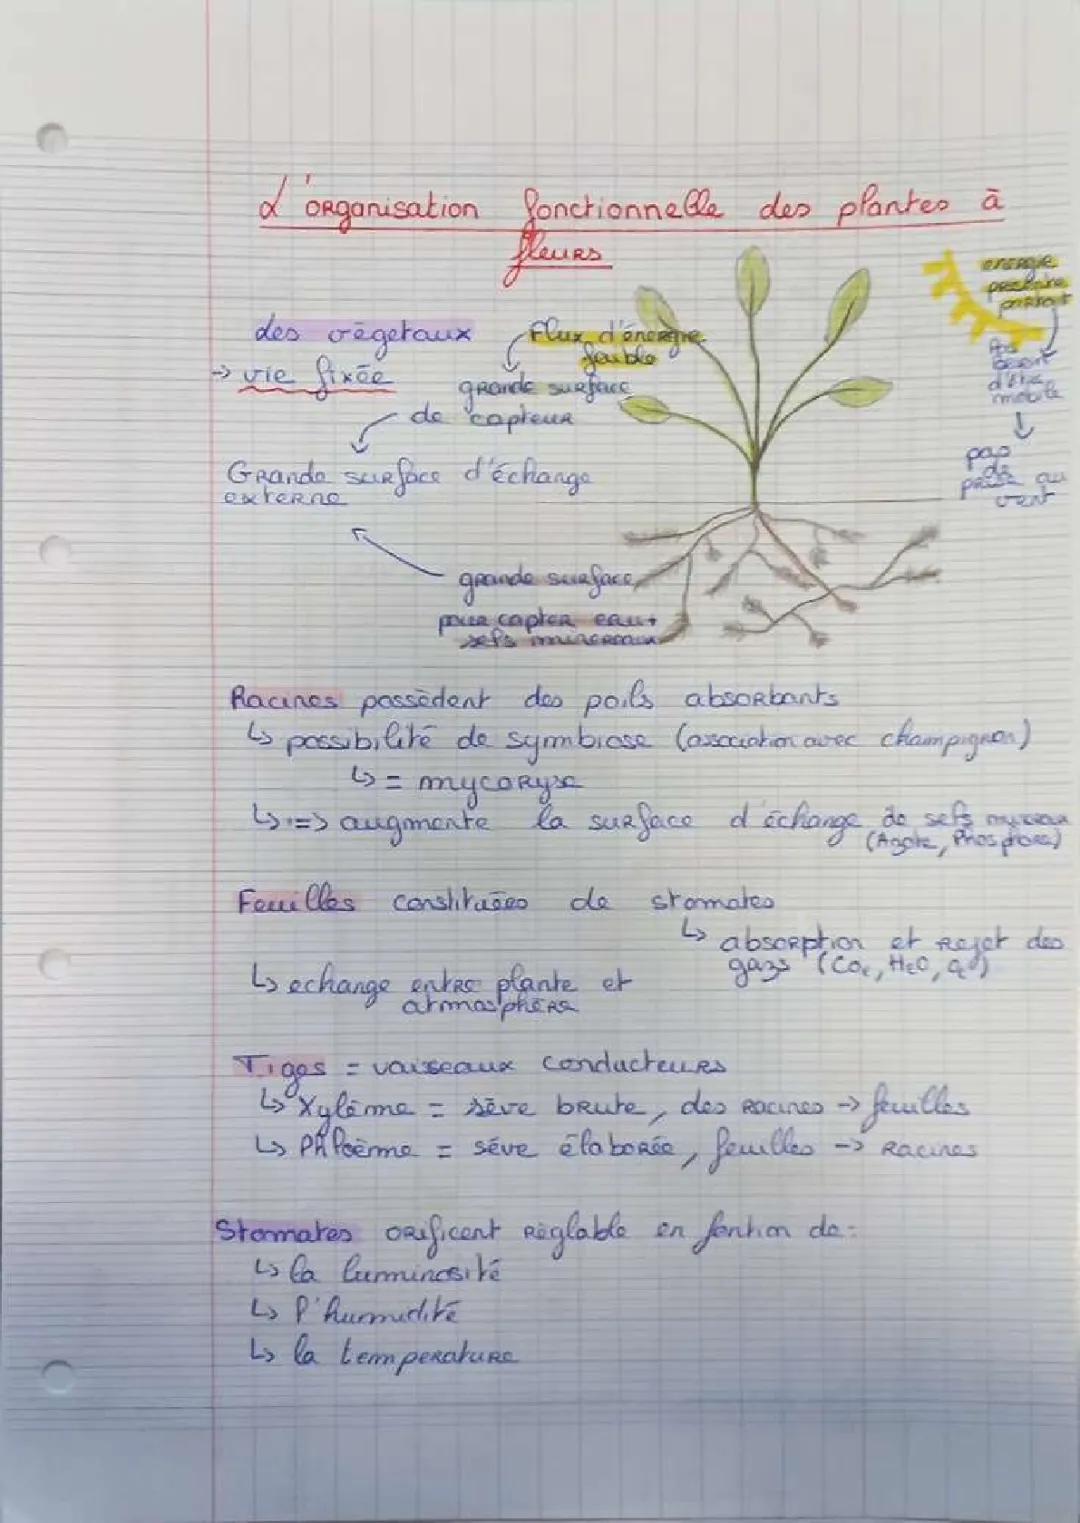 L'organisation fonctionnelle des plantes à
fleurs
des végétaux
→ vie fixée
Flux d'énergie
faible
grande surface
de capteur
Grande surface d'échange
externe
énergie
partout
pas
besoin
d'être
mobile
pas
de
prise au
vent
grande surface
pour capter eau +
sels minéraux
Racines possèdent des poils absorbants
↳ possibilité de symbiose (association avec champignon)
↳ = mycoryse
↳ => augmente la surface d'échange de sels minéraux
(Azote, Phosphore)
Feuilles constituées de stomates
↳ absorption et rejet des
gazs (CO2, H2O, O2)
↳ echange entre plante et
atmosphère
Tiges = vaisseaux conducteurs
↳ Xylème = sève brute, des racines → feuilles
↳ Phloème = séve élaborée, feuilles → Racines
Stomates orificent réglable en fontion de :
↳ la luminosité
↳ l'humidité
↳ la temperature